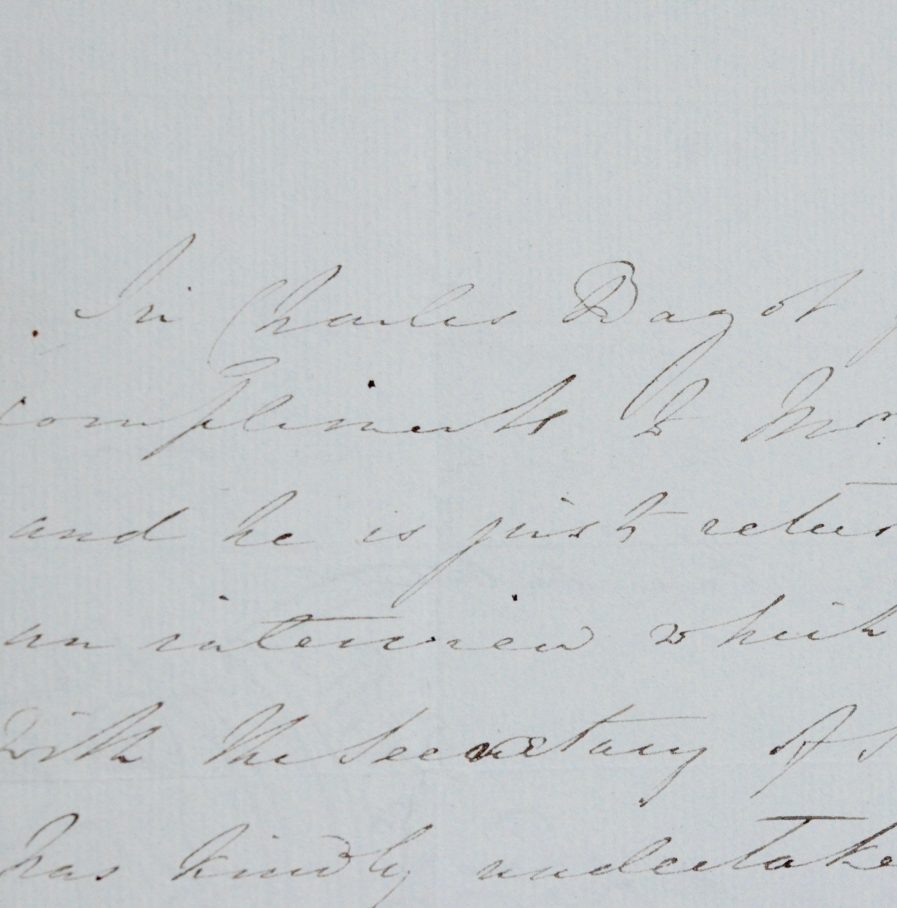 Sir Charles Bagot
compliments to Mr
and he is just retur
an interview which
with the Secretary of S
has kindly undertake